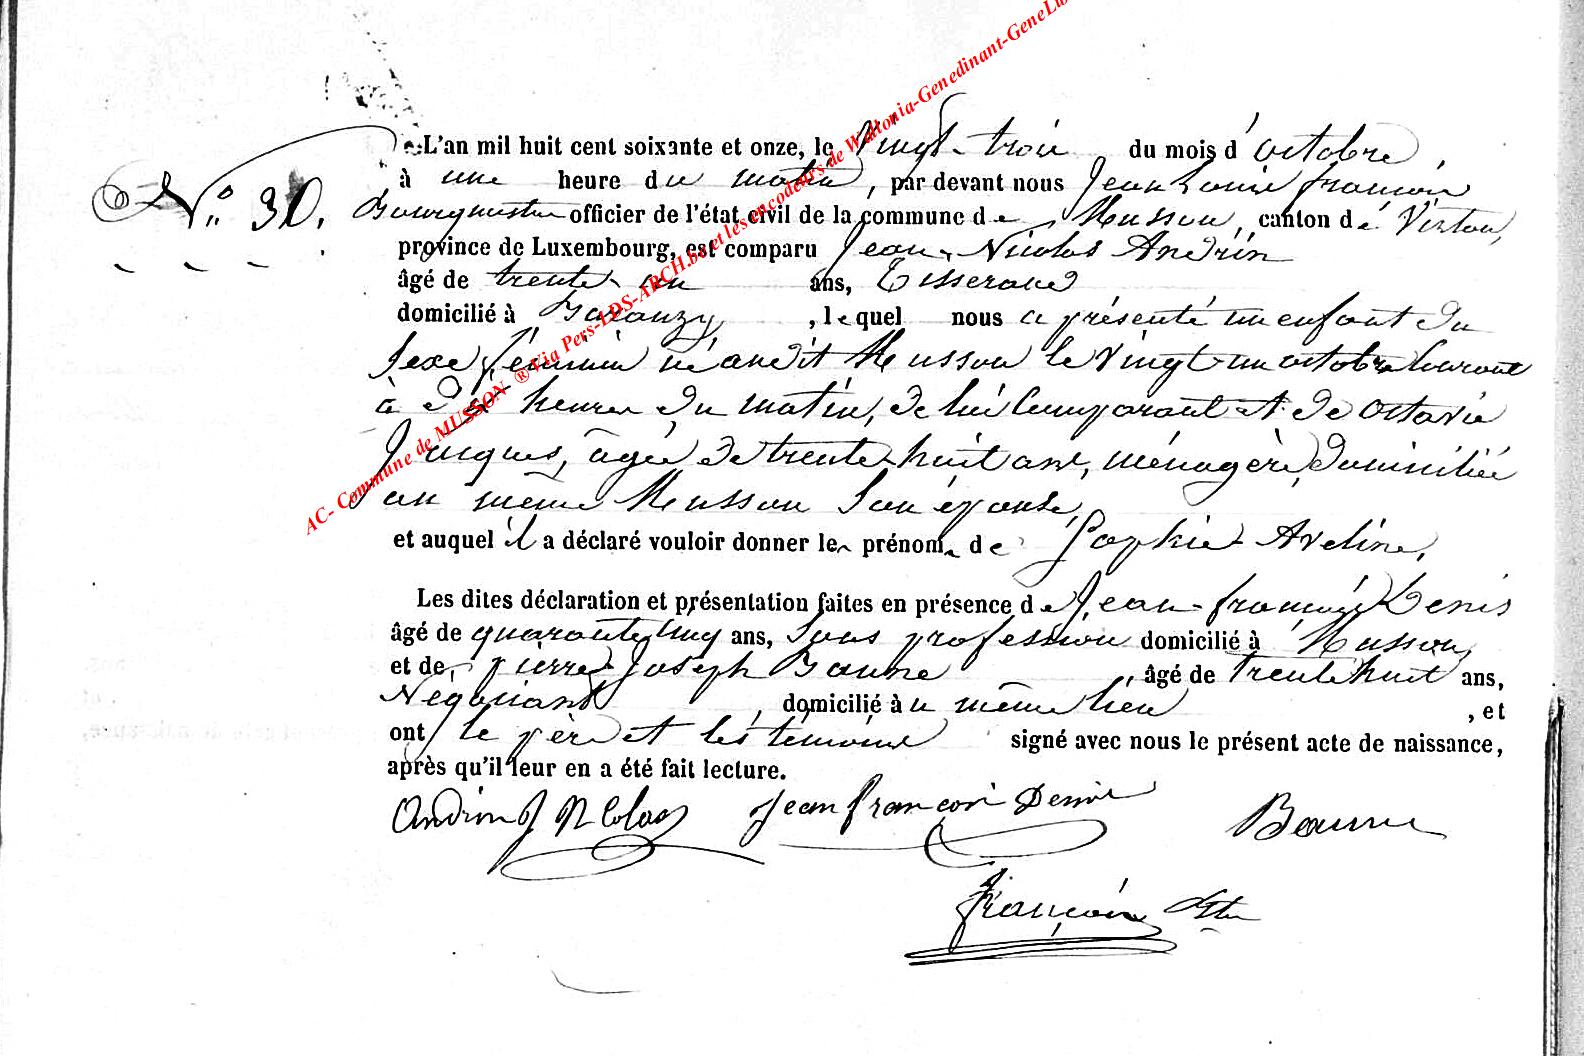 AC- Commune de MUSSON ® Via Pers-LDS-ARCH.be et les encodeurs de Wallonia-Genedinant-GeneLux
N.º 30.
L'an mil huit cent soixante et onze, le Vingt-trois du mois d'octobre,
à une heure du matin, par devant nous Jean Louis françois
Bourgmestre officier de l'état civil de la commune de Musson, canton de Virton,
province de Luxembourg, est comparu Jean-Nicolas Andrin
âgé de trente un ans, Tisserand
domicilié à Baranzy, lequel nous a présenté un enfant du
sexe féminin né audit Musson le vingt un octobre courant
à heures du matin, de lui Comparant et de Octavie
Jacques, âgée de trente-huit ans, ménagère, domiciliée
au même Musson son épouse,
et auquel il a déclaré vouloir donner les prénoms de Sophie Aveline.
Les dites déclaration et présentation faites en présence de Jean-françois Denis
âgé de quarante cinq ans, Sans profession domicilié à Musson
et de pierre Joseph Baune âgé de trente huit ans,
Négociant, domicilié au même lieu, et
ont le père et les témoins signé avec nous le présent acte de naissance,
après qu'il leur en a été fait lecture.
Andrin J Nicolas Jean françois Denis Baune
françois